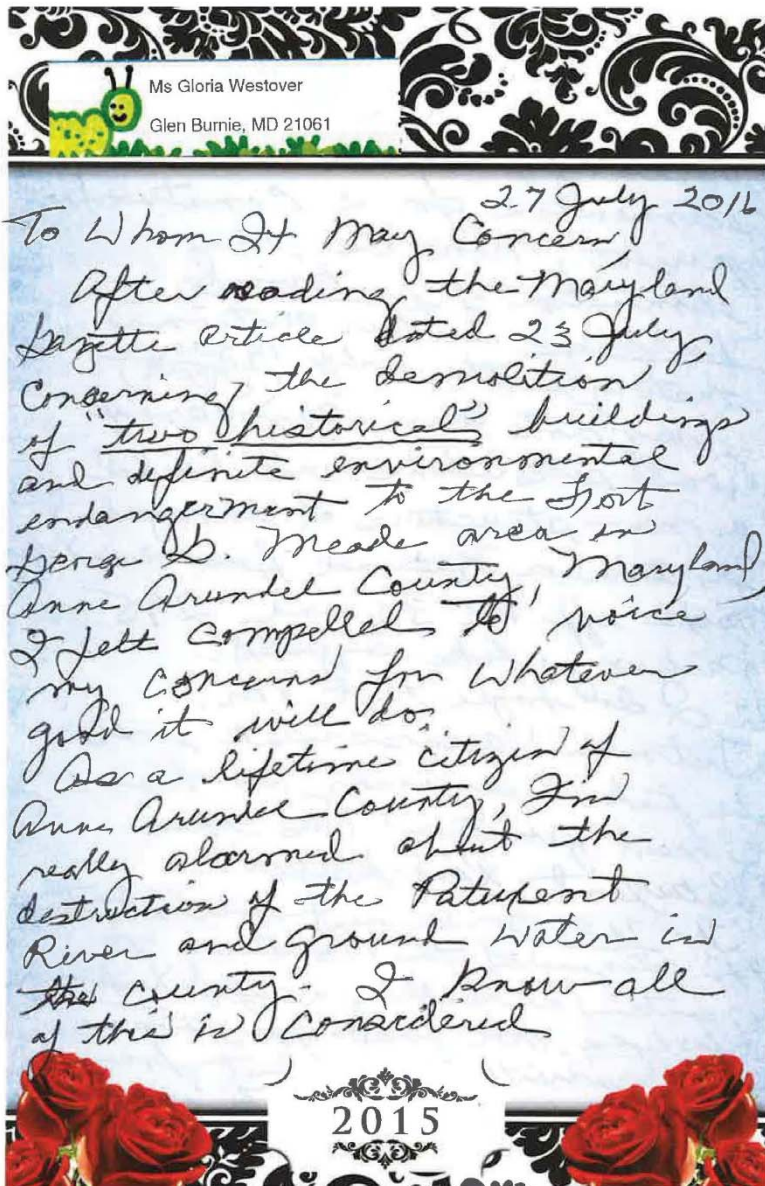 Ms Gloria Westover
Glen Burnie, MD 21061
27 July 2016
To Whom It May Concern,
After reading the Maryland
Gazette article dated 23 July,
concerning the demolition
of "two historical" buildings
and definite environmental
endangerment to the Fort
George G. Meade area in
Anne Arundel County, Maryland,
I felt compelled to voice
my concerns for whatever
good it will do.
As a lifetime citizen of
Anne Arundel County, I'm
really alarmed about the
destruction of the Patuxent
River and ground water in
the county. I know all
of this is considered
2015